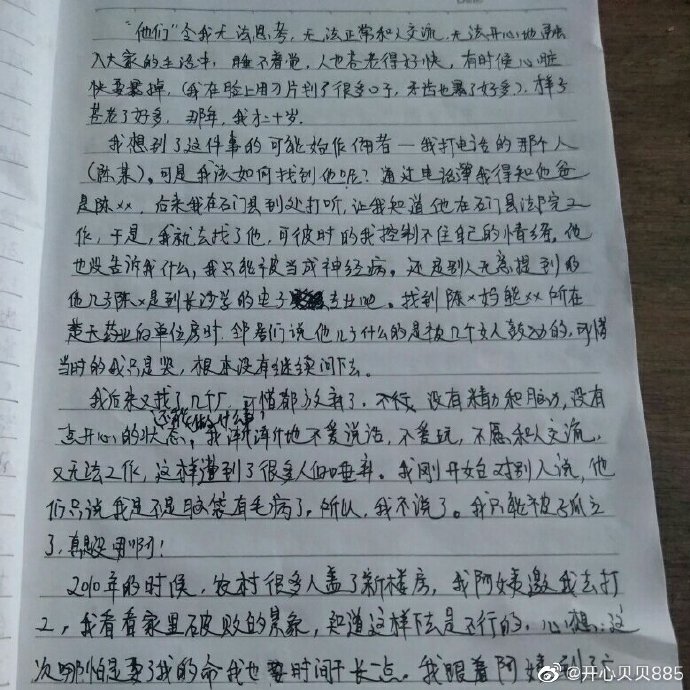 "他们"令我无法思考，无法正常和人交流，无法开心地融
入大家的生活中，睡不着觉，人也苍老得好快，有时候心脏
快要暴掉，(我在脸上用刀片划了很多口子，牙齿也暴了好多)，样子
苍老了好多，那年，我才二十岁。
我想到了这件事的可能始作俑者—我打电话的那个人
(陈某)。可是我该如何找到他呢？通过电话簿我得知他爸
是陈xx，后来我在石门县到处打听，让我知道他在石门县法院工
作，于是，我就去找了他，可彼时的我控制不住自己的情绪。他
也没告诉我什么，我只能被当成神经病。还是别人无意提到的
他儿子陈x是到长沙学的电子专业吧。找到陈x妈熊xx所在
楚天药业的单位房时，邻居们说他儿子什么的是被几个女人鼓动的，可惜
当时的我只是哭，根本没有继续问下去。
我后来又找了几个厂，可惜都放弃了，不行，没有精力和脑力，没有
还能做什么事？
点开心的状态，我渐渐地不爱说话，不爱玩，不愿和人交流，
又无法工作，这样遭到了很多人的唾弃。我刚开始对别人说，他
们只说我是不是脑袋有毛病了。所以，我不说了。我只能被孤立
了，真是没用啊！
2010年的时候，农村很多人盖了新楼房，我阿姨邀我去打
工，我看看家里破败的景象，知道这样下去是不行的，心想：这
次哪怕是要了我的命我也要时间干长一点。我跟着阿姨到了
@开心贝贝885